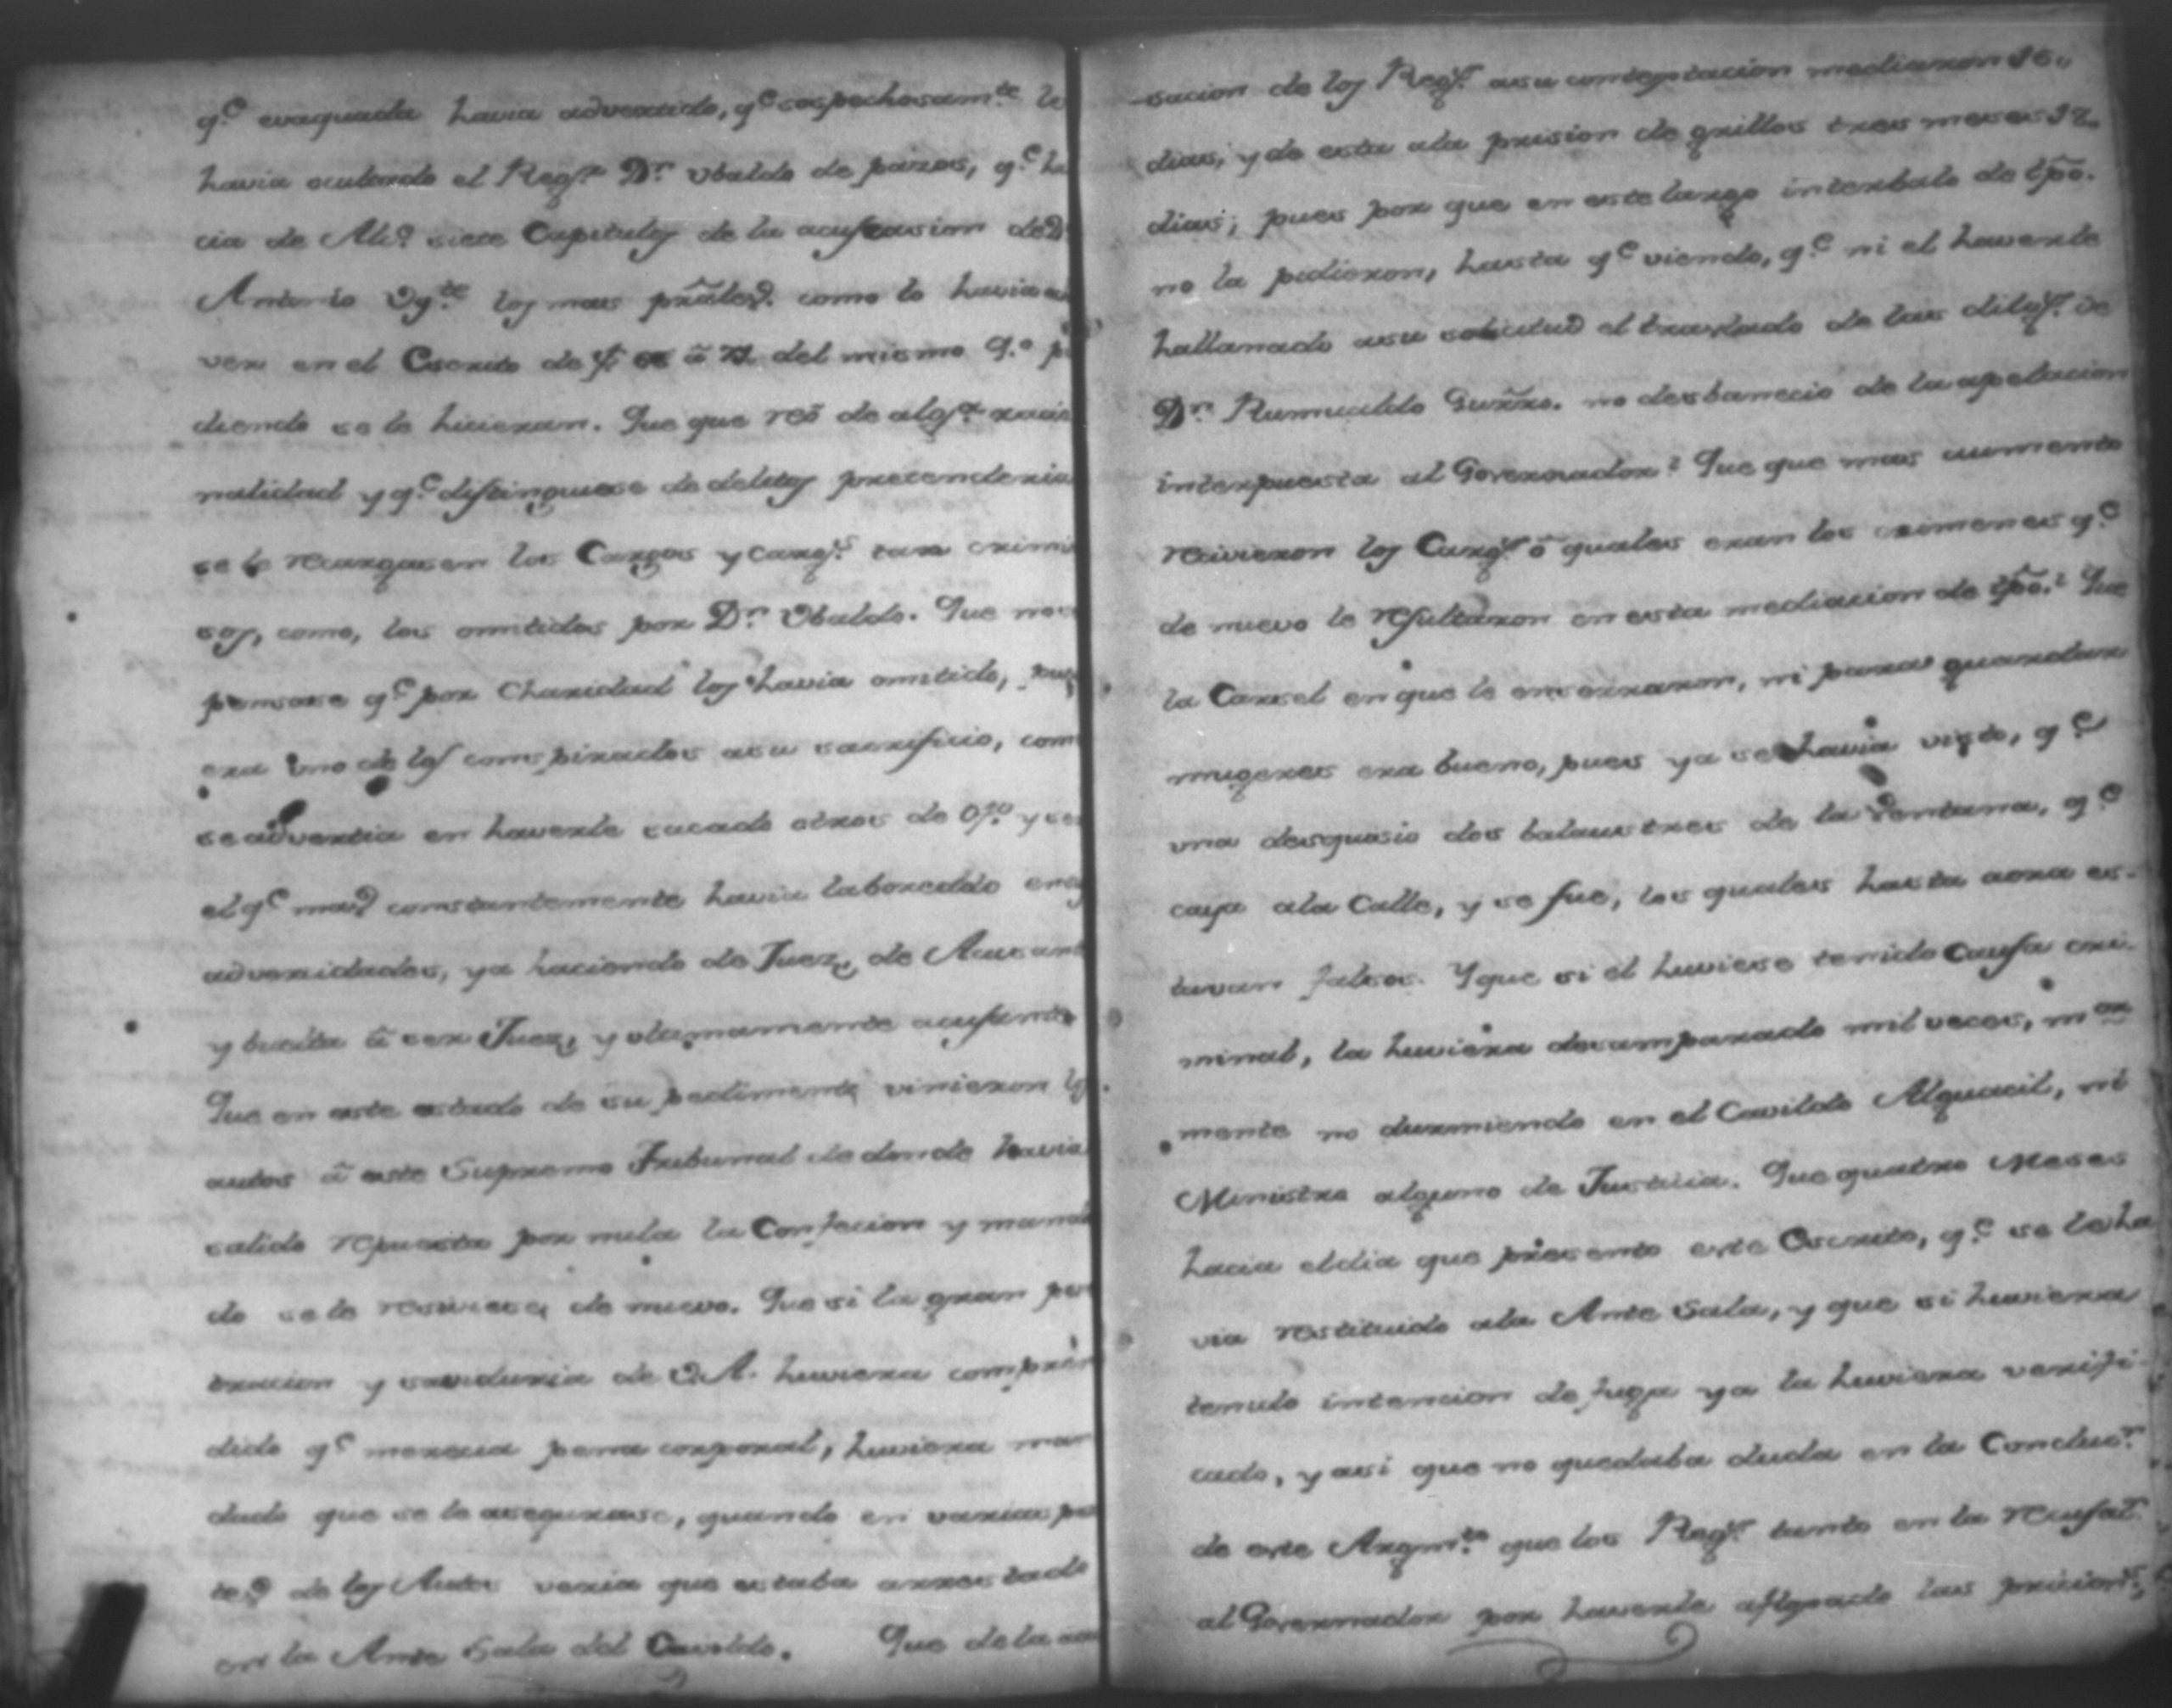 q.e evaquada havia advertido, q.e sospechosam.te le
havia ocultado el Reg.r D.n Ubaldo de pazos, q.e ha
cia de Alc.e siete Capitulos de la acusasion de D.n
Antonio Ug.te los mas prãles. como lo havia a
ver en el Escrito de f. ã del mismo q.o p
diendo se le hicieran. Que que reõ de alg.a racio
nalidad y q.e distinguiese de delitos pretenderia
se le recargasen los Cargos y carg.s tan crimi
sos, como, los omitidos por D.n Ubaldo. Que no s
pensase q.e por Charidad los havia omitido, pues
era uno de los conspirados asu sacrificio, com
se advertia en haverle sacado otros de 0f.o y se
el q.e mas constantemente havia laboreado en
adversidades, ya haciendo de Juez, de Acusante
y buelta ã ser Juez, y ultamamente acusante
Que en este estado de su pedimento vinieron los
autos ã este Supremo Tribunal de donde havia
salido repuesta por nula la Confecion y manda
do se le resiviese de nuevo. Que si la gran pen
tracion y saviduria de V.A. huviera compren
dido q.e merecia pena corporal, huviera man
dado que se le asegurase, quando en varias par
tes de los Autos veria que estaba arrestado
en la Ante Sala del Cavildo. Que de la acu
sacion de los Reg.s asu contestacion mediaron 16,,
dias, y de esta ala prision de grillos tres meses 12
dias; pues por que en este largo interbalo de tpõ.
no la pidieron, hasta q.e viendo, q.e ni el haverle
hallanado asu solicitud el traslado de las dilig.s de
D.n Rumualdo Guxxo. no desbanecio de la apelacion
interpuesta al Governador? Que que mas aumento
recivieron los Carg.s õ quales eran los crimenes q.e
de nuevo le resultaron en esta mediacion de tpõ.? Que
la Carsel en que le encerraron, ni para guardar
mugeres era bueno, pues ya se havia visto, q.e
una desquasio dos balaustres de la Ventana, q.e
caya ala Calle, y se fue, los quales hasta aora es-
tavan falsos. Y que si el huviese tenido causa cri-
minal, la huviera desamparado mil veces, m.or
mente no durmiendo en el Cavildo Alguacil, ni
Ministro alguno de Justicia. Que quatro Meses
hacia el dia que presento este Escrito, q.e se le ha
via restituido ala Ante Sala, y que si huviera
tenido intencion de fuga ya la huviera verifi-
cado, y asi que no quedaba duda en la Concluc.n
de este Argm.to que los Reg.s tanto en la recusas.n
al Governador por haverle afloxado las pricion.s,